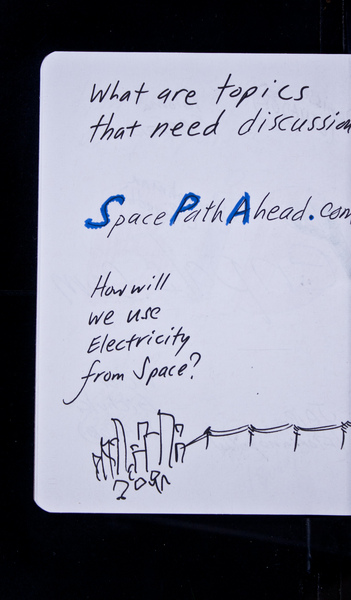 What are topics
that need discussion
SpacePathAhead.com
How will
we use
Electricity
from Space?